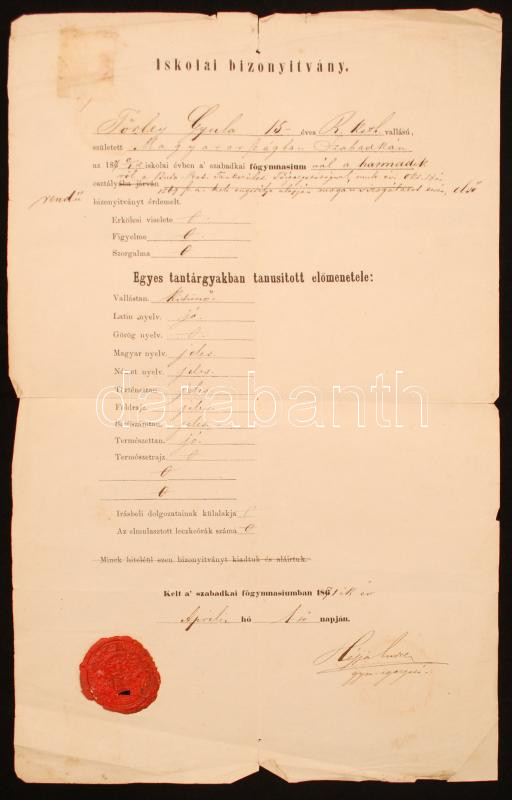 Iskolai bizonyitvány.
Gyula 15- éves R. Kath. vallású,
született Magyarországban Szabadkán
az 18 iskolai évben a' szabadkai főgymnasium ról a harmadik
osztályba járván első
rendű
bizonyitványt érdemelt.
Erkölcsi viselete 0
Figyelme 0
Szorgalma 0
Egyes tantárgyakban tanusított előmenetele:
Vallástan. kitünő.
Latin nyelv. jó.
Görög nyelv. 0
Magyar nyelv. jeles
Német nyelv. jeles.
Történettan. jeles.
Földrajz jeles
Betüszámtan. jeles.
Természettan. jó.
Természetrajz. 0
0
0
Irásbeli dolgozatainak külalakja 0
Az elmulasztott leczkeórák száma 0
Minek hiteléül ezen bizonyitványt kiadtuk és aláirtuk.
Kelt a' szabadkai főgymnasiumban 186
April hó 1ső napján.
darabanth